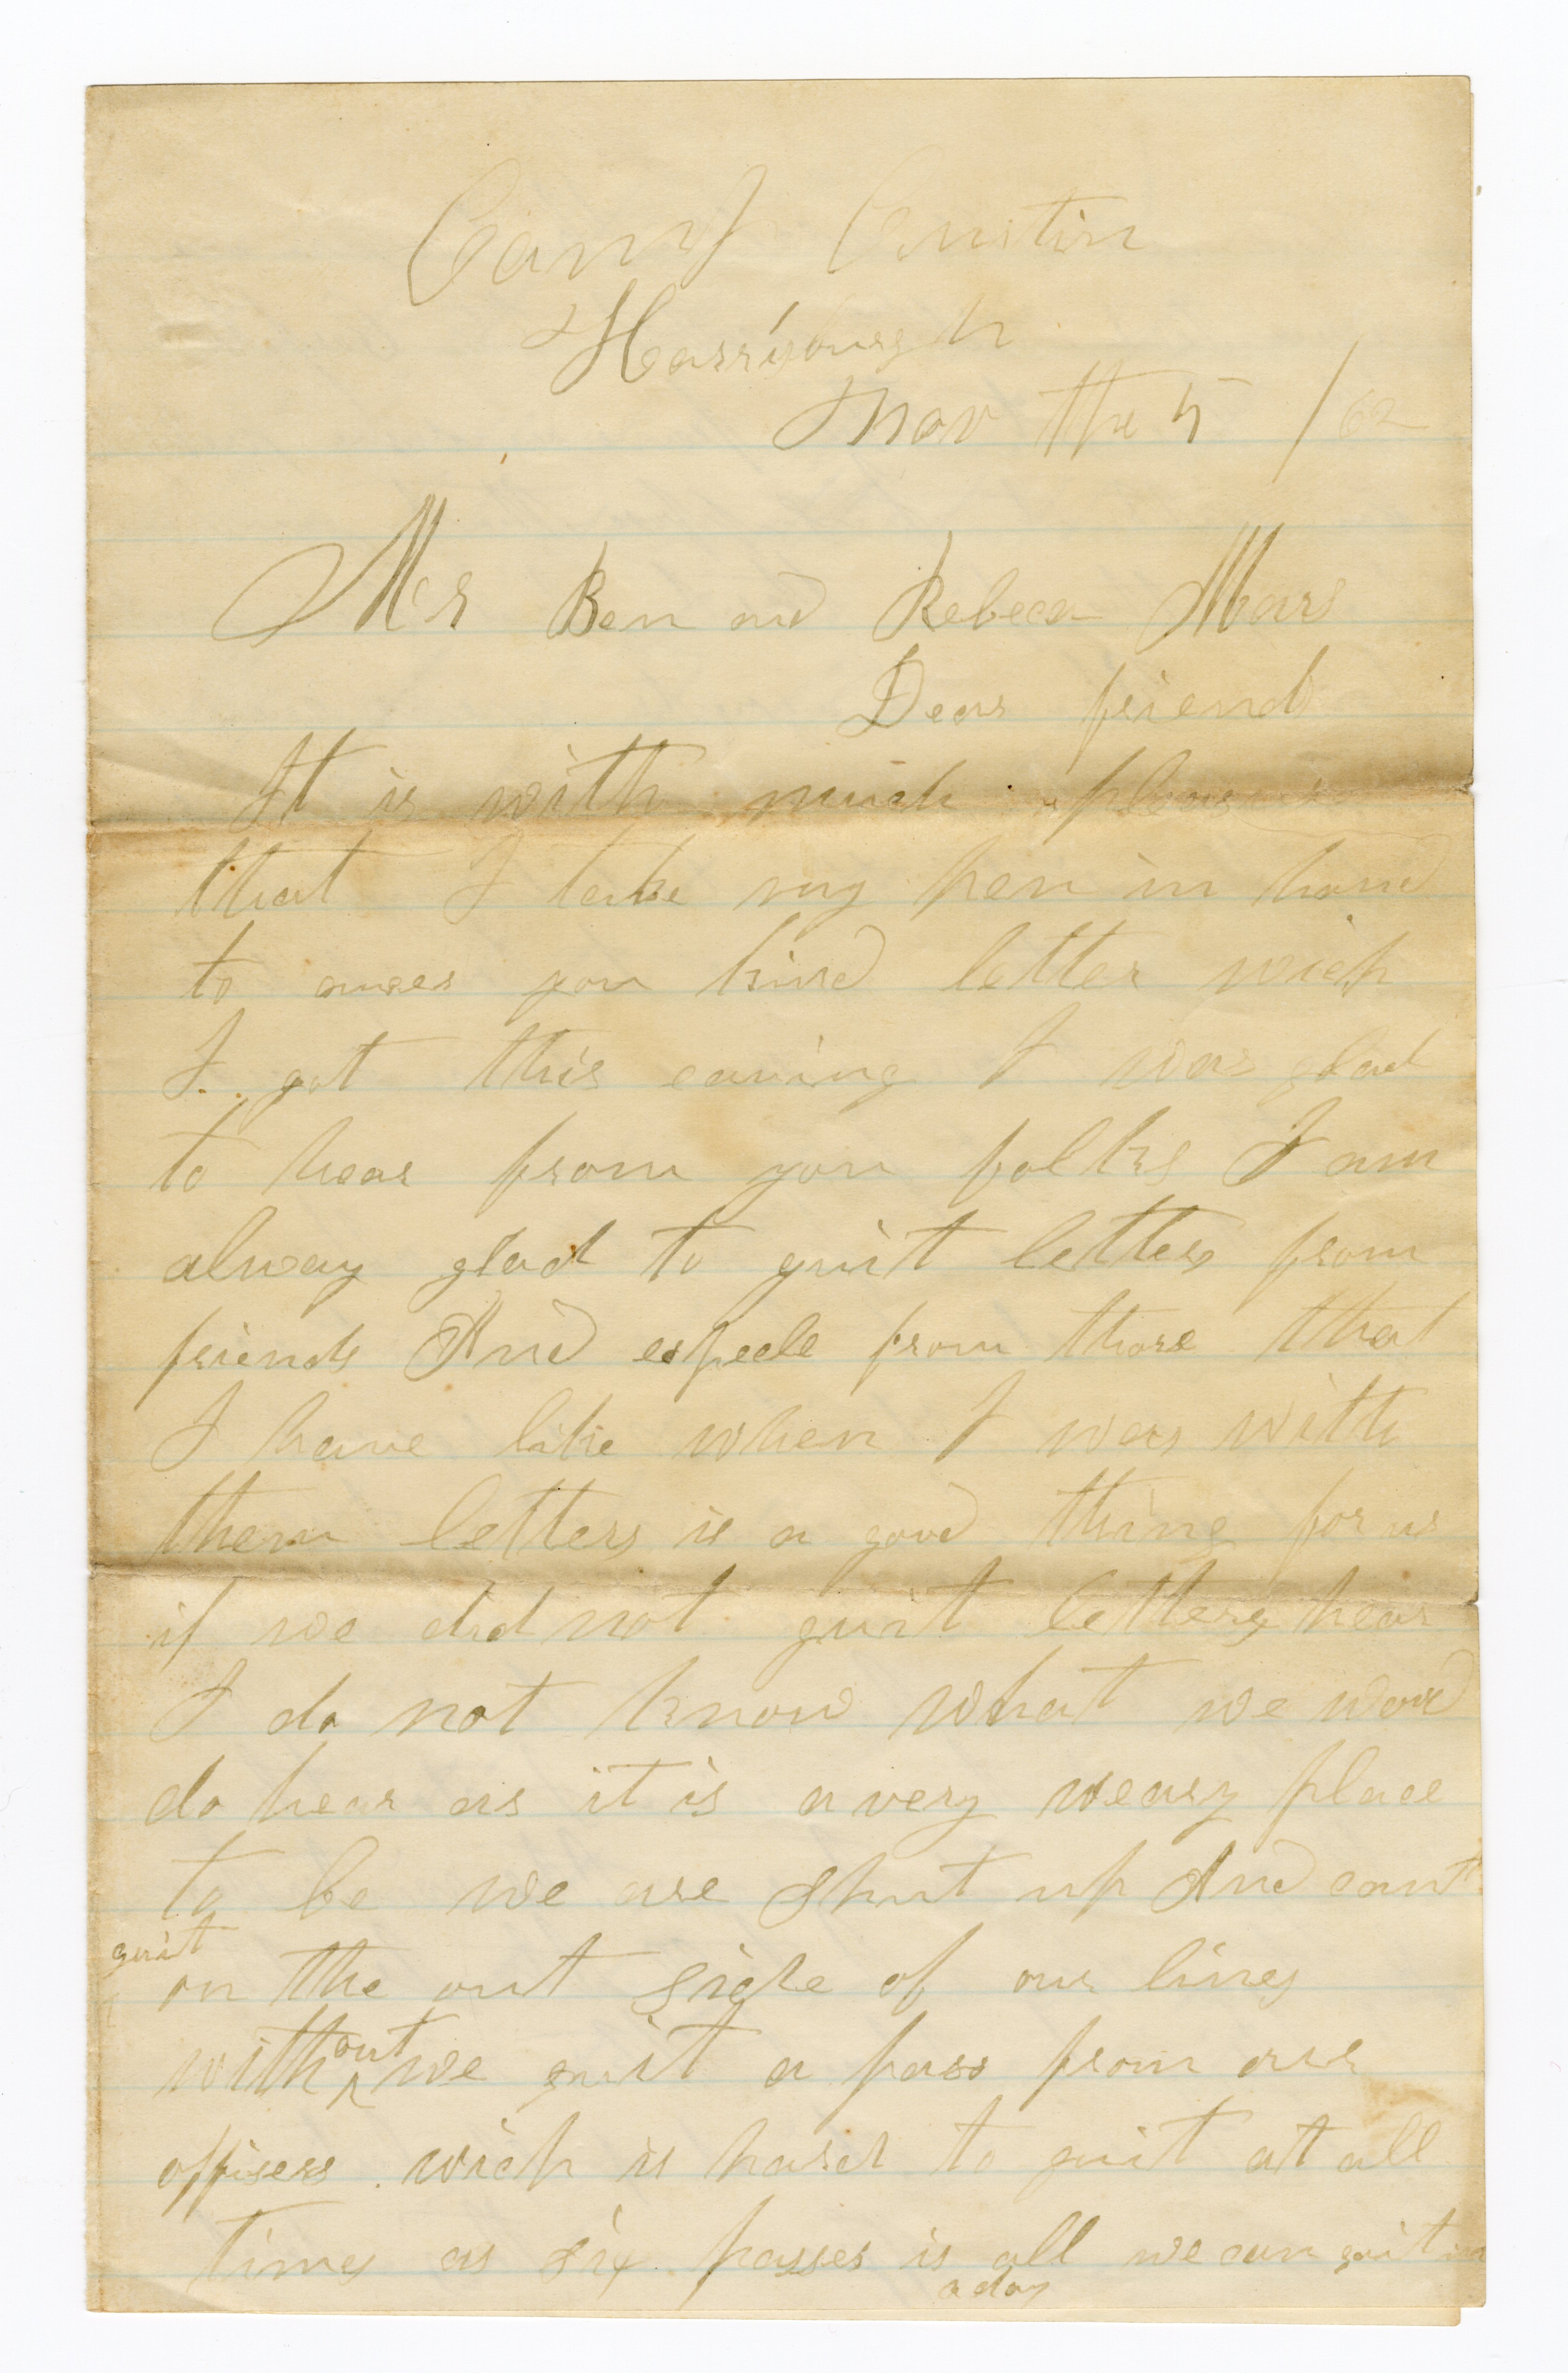 Camp Curtin
Harrisburgh
Nov the 5 /62
Mr Ben and Rebeca Mars
Dear friend
It is with much pleasure
that I take my pen in hand
to anser you kind letter wich
I got this eaving I was glad
to hear from you folks I am
alway glad to guit letters from
friends And espeele from those that
I have like when I was with
them letters is a good thing for us
if we did not guit letters hear
I do not know what we wood
do hear as it is a very weary place
to be we are shut up And cant
guit
on the out side of our lines
without we guit a pass from our
offisers wich is hard to guit at all
times as six passes is all we can guit in
a day